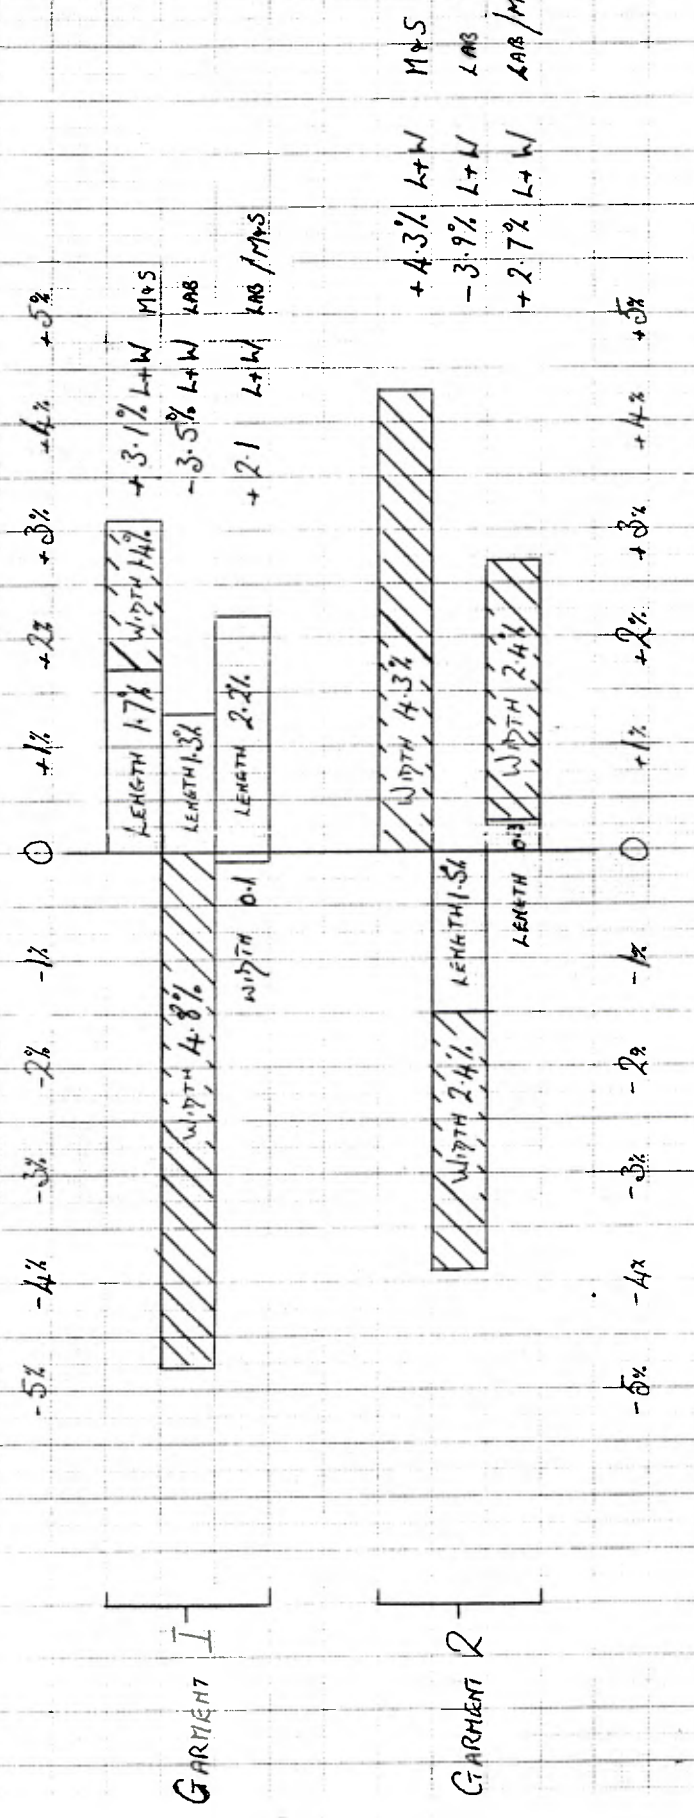 -5% -4% -3% -2% -1% 0 +1% +2% +3% +4% +5%
GARMENT I
LENGTH 1.7% WIDTH 1.4% +3.1% L+W M&S
WIDTH 4.8% LENGTH 1.3% -3.5% L+W LAB
WIDTH 0.1 LENGTH 2.2% +2.1 L+W LAB/M&S
GARMENT 2
WIDTH 4.3% +4.3% L+W M&S
WIDTH 2.4% LENGTH 1.5% -3.9% L+W LAB
LENGTH 0.3 WIDTH 2.4% +2.7% L+W LAB/M
-5% -4% -3% -2% -1% 0 +1% +2% +3% +4% +5%